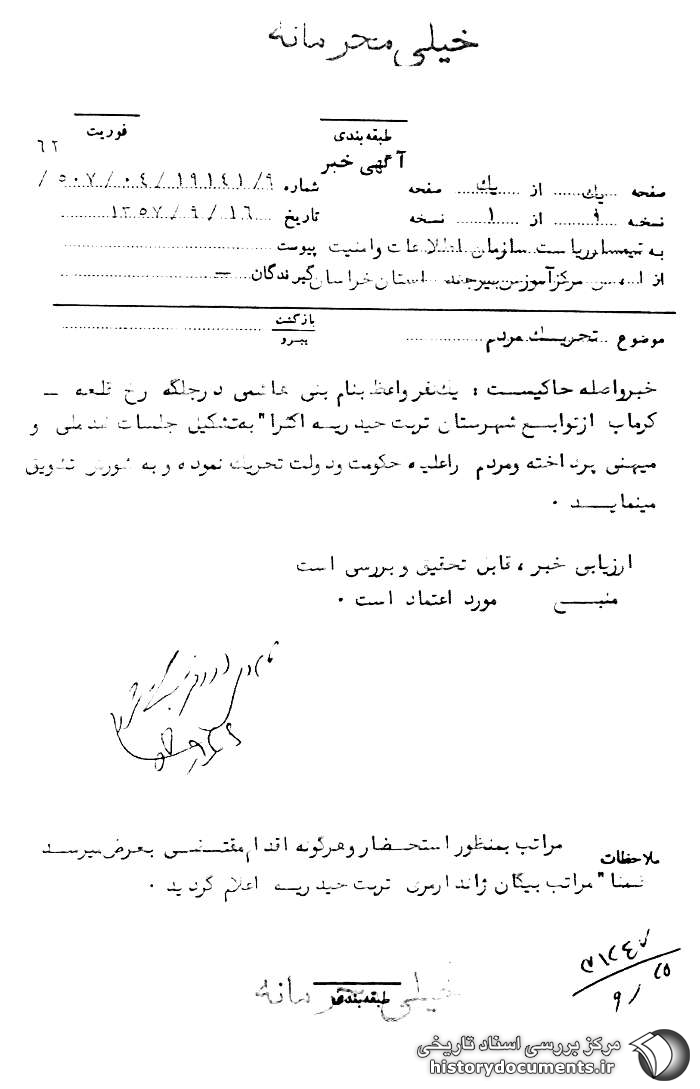 خیلی محرمانه
طبقه‌بندی
فوریت
آگهی خبر
۶۲
صفحه یک از یک صفحه
شماره ۱۹۱۴۱/۹ / ۰۴ / ۵۰۷ /
نسخه ۹ از ۱ نسخه
تاریخ ۱۶ / ۹ / ۱۳۵۷
به تیمسار ریاست سازمان اطلاعات وامنیت
پیوست
از مرکزآموزش بیرجند استان خراسان
گیرندگان —
موضوع تحریک مردم
بازگشت
پیرو
خبرواصله حاکیست : یکنفر واعظ بنام بنی هاشمی درجلگه رخ قلعه —
کرماب ازتوابع شهرستان تربت حیدریه اکثرا" به‌تشکیل جلسات ضدملی و
میهنی پرداخته ومردم راعلیه حکومت ودولت تحریک نموده و به شورش تشویق
مینماید .
ارزیابی خبر ، قابل تحقیق و بررسی است
منبع مورد اعتماد است .
ملاحظات
مراتب بمنظور استحضار وهرگونه اقدام مقتضی بعرض میرسد
ضمنا" مراتب بیگان ژاندارمری تربت حیدریه اعلام گردید .
۲۵
۹/
خیلی محرمانه
طبقه‌بندی
مرکز بررسی اسناد تاریخی
historydocuments.ir